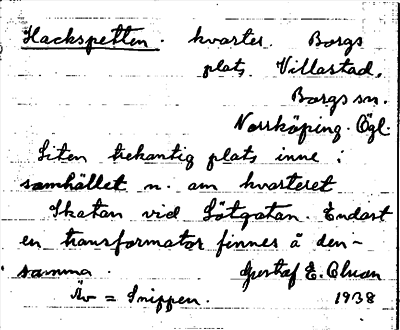 Hackspetten. kvarter. Borgs
plats Villastad,
Borgs sn.
Norrköping. Ögl.
Liten trekantig plats inne i
samhället n. om kvarteret
Skatan vid Götgatan. Endast
en transformator finnes å den-
samma. Gustaf E. Olsson
Äv = Snippen. 1938